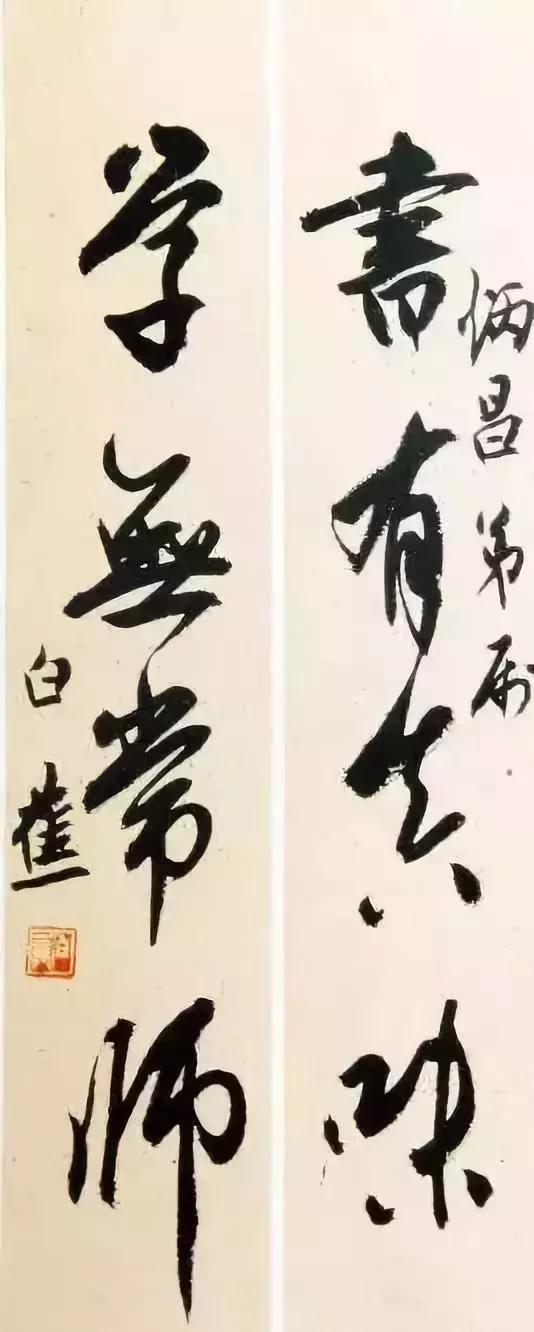 炳昌弟属
書有真味
学無常師
白蕉